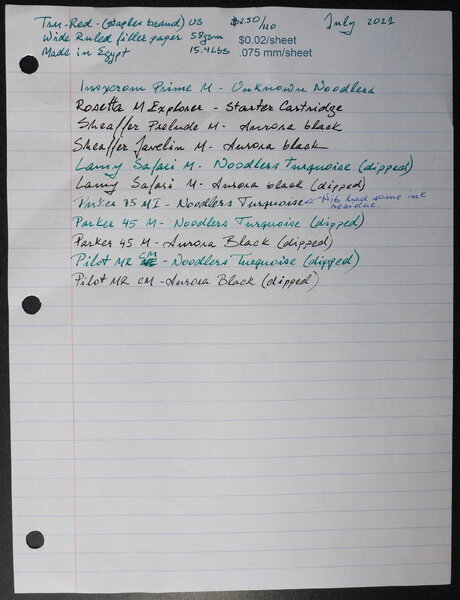 Tru-Red-(stapler brand) US $2.50/120 July 2021
Wide Ruled filler paper 58gsm $0.02/sheet
Made in Egypt 15.4Lbs .075 mm/sheet
Inoxcrom Prime M - Unknown Noodlers
Rosetta M Explorer - Starter Cartridge
Sheaffer Prelude M - Aurora black
Sheaffer Javelin M - Aurora black
Lamy Safari M - Noodlers Turquoise (dipped)
Lamy Safari M - Aurora black (dipped)
Parker 75 MI - Noodlers Turquoise ← Nib had some ink residue.
Parker 45 M - Noodlers Turquoise (dipped)
Parker 45 M - Aurora Black (dipped)
Pilot MR CM - Noodlers Turquoise (dipped)
Pilot MR CM - Aurora Black (dipped)